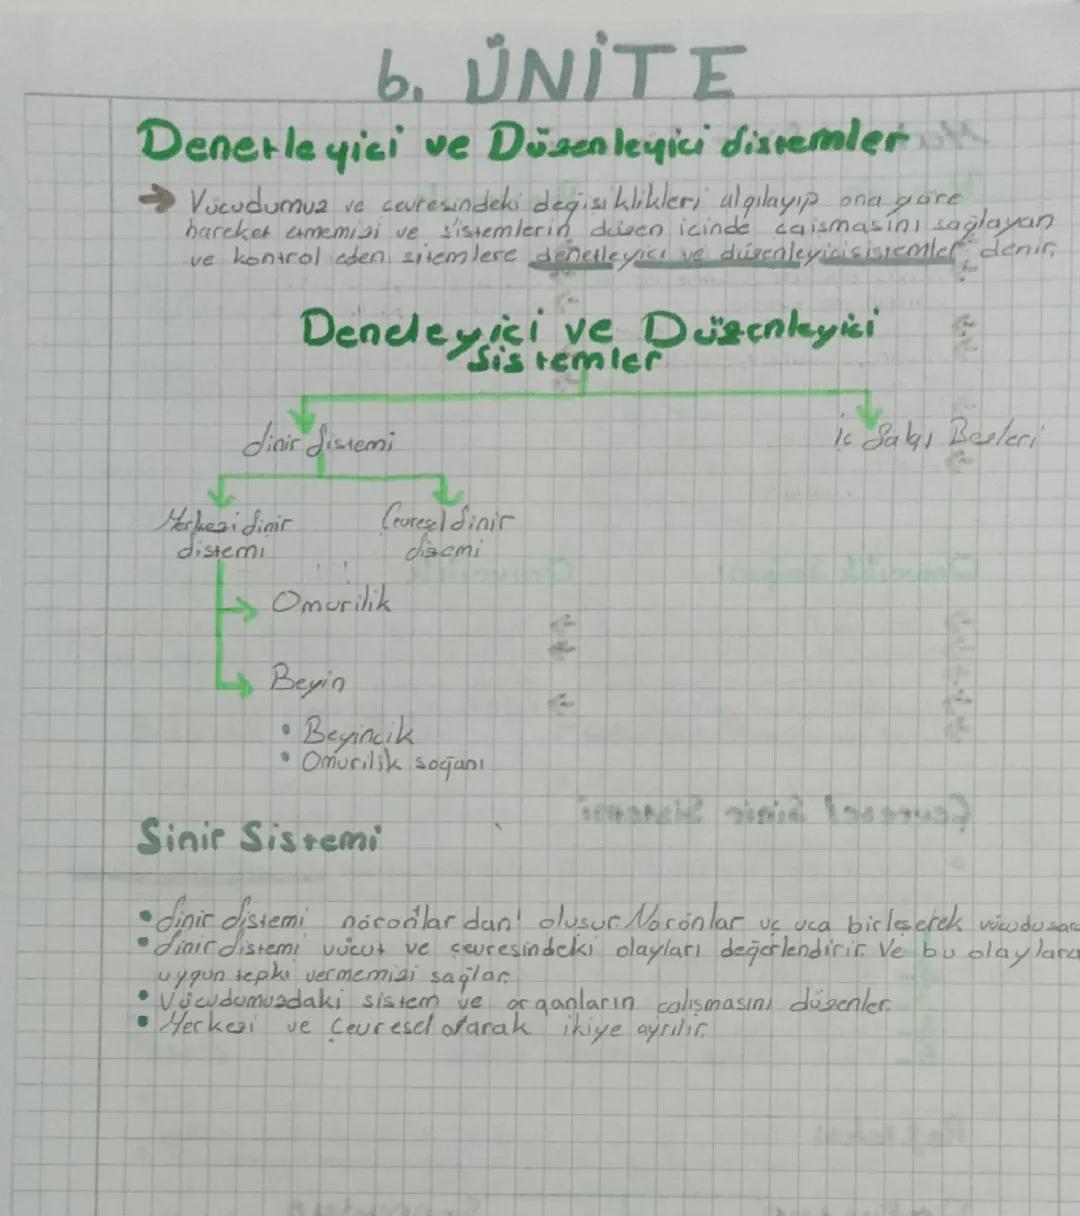 6. ÜNİTE
Denetleyici ve Düzenleyici Sistemler
Vücudumuz ve çevresindeki değişiklikleri algılayıp ona göre
hareket etmemizi ve sistemlerin düzen içinde çalışmasını sağlayan
ve kontrol eden sitemlere denetleyici ve düzenleyici sistemler denir.
Denetleyici ve Düzenleyici
Sistemler
Sinir Sistemi
İç Salgı Bezleri
Merkezi Sinir
Sistemi
Çevresel Sinir
Omurilik
Beyin
• Beyincik
• Omurilik soğanı
Sinir Sistemi
• Sinir Sistemi nöronlardan oluşur. Nöronlar uç uca birleşerek
• Sinir Sistemi vücut ve çevresindeki olayları değerlendirir. Ve bu olaylara
uygun tepki vermemizi sağlar.
• Vücudumuzdaki sistem ve organların çalışmasını düzenler.
• Merkezi ve Çevresel olarak ikiye ayrılır.